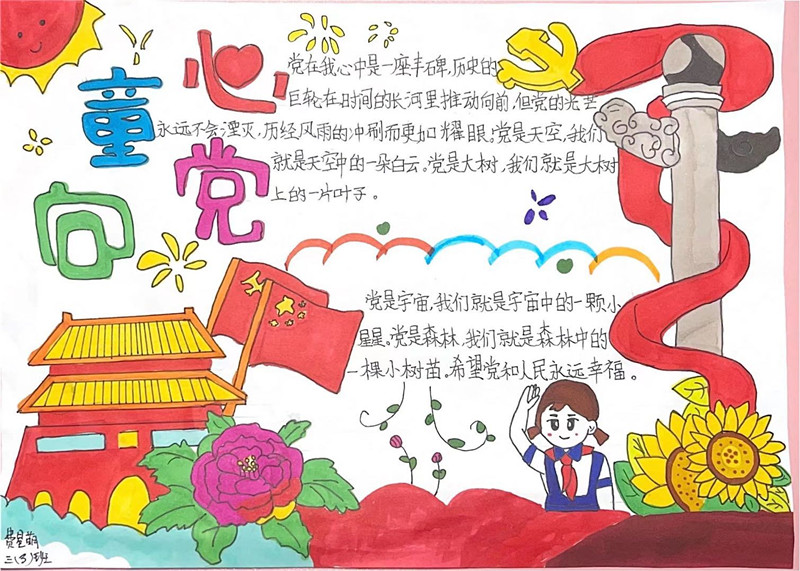 童心
向党
党在我心中是一座丰碑,历史的
巨轮在时间的长河里推动向前,但党的光芒
永远不会湮灭,历经风雨的冲刷而更加耀眼。党是天空,我们
就是天空中的一朵白云。党是大树,我们就是大树
上的一片叶子。
党是宇宙,我们就是宇宙中的一颗小
星星。党是森林,我们就是森林中的
一棵小树苗。希望党和人民永远幸福。
三(3)班